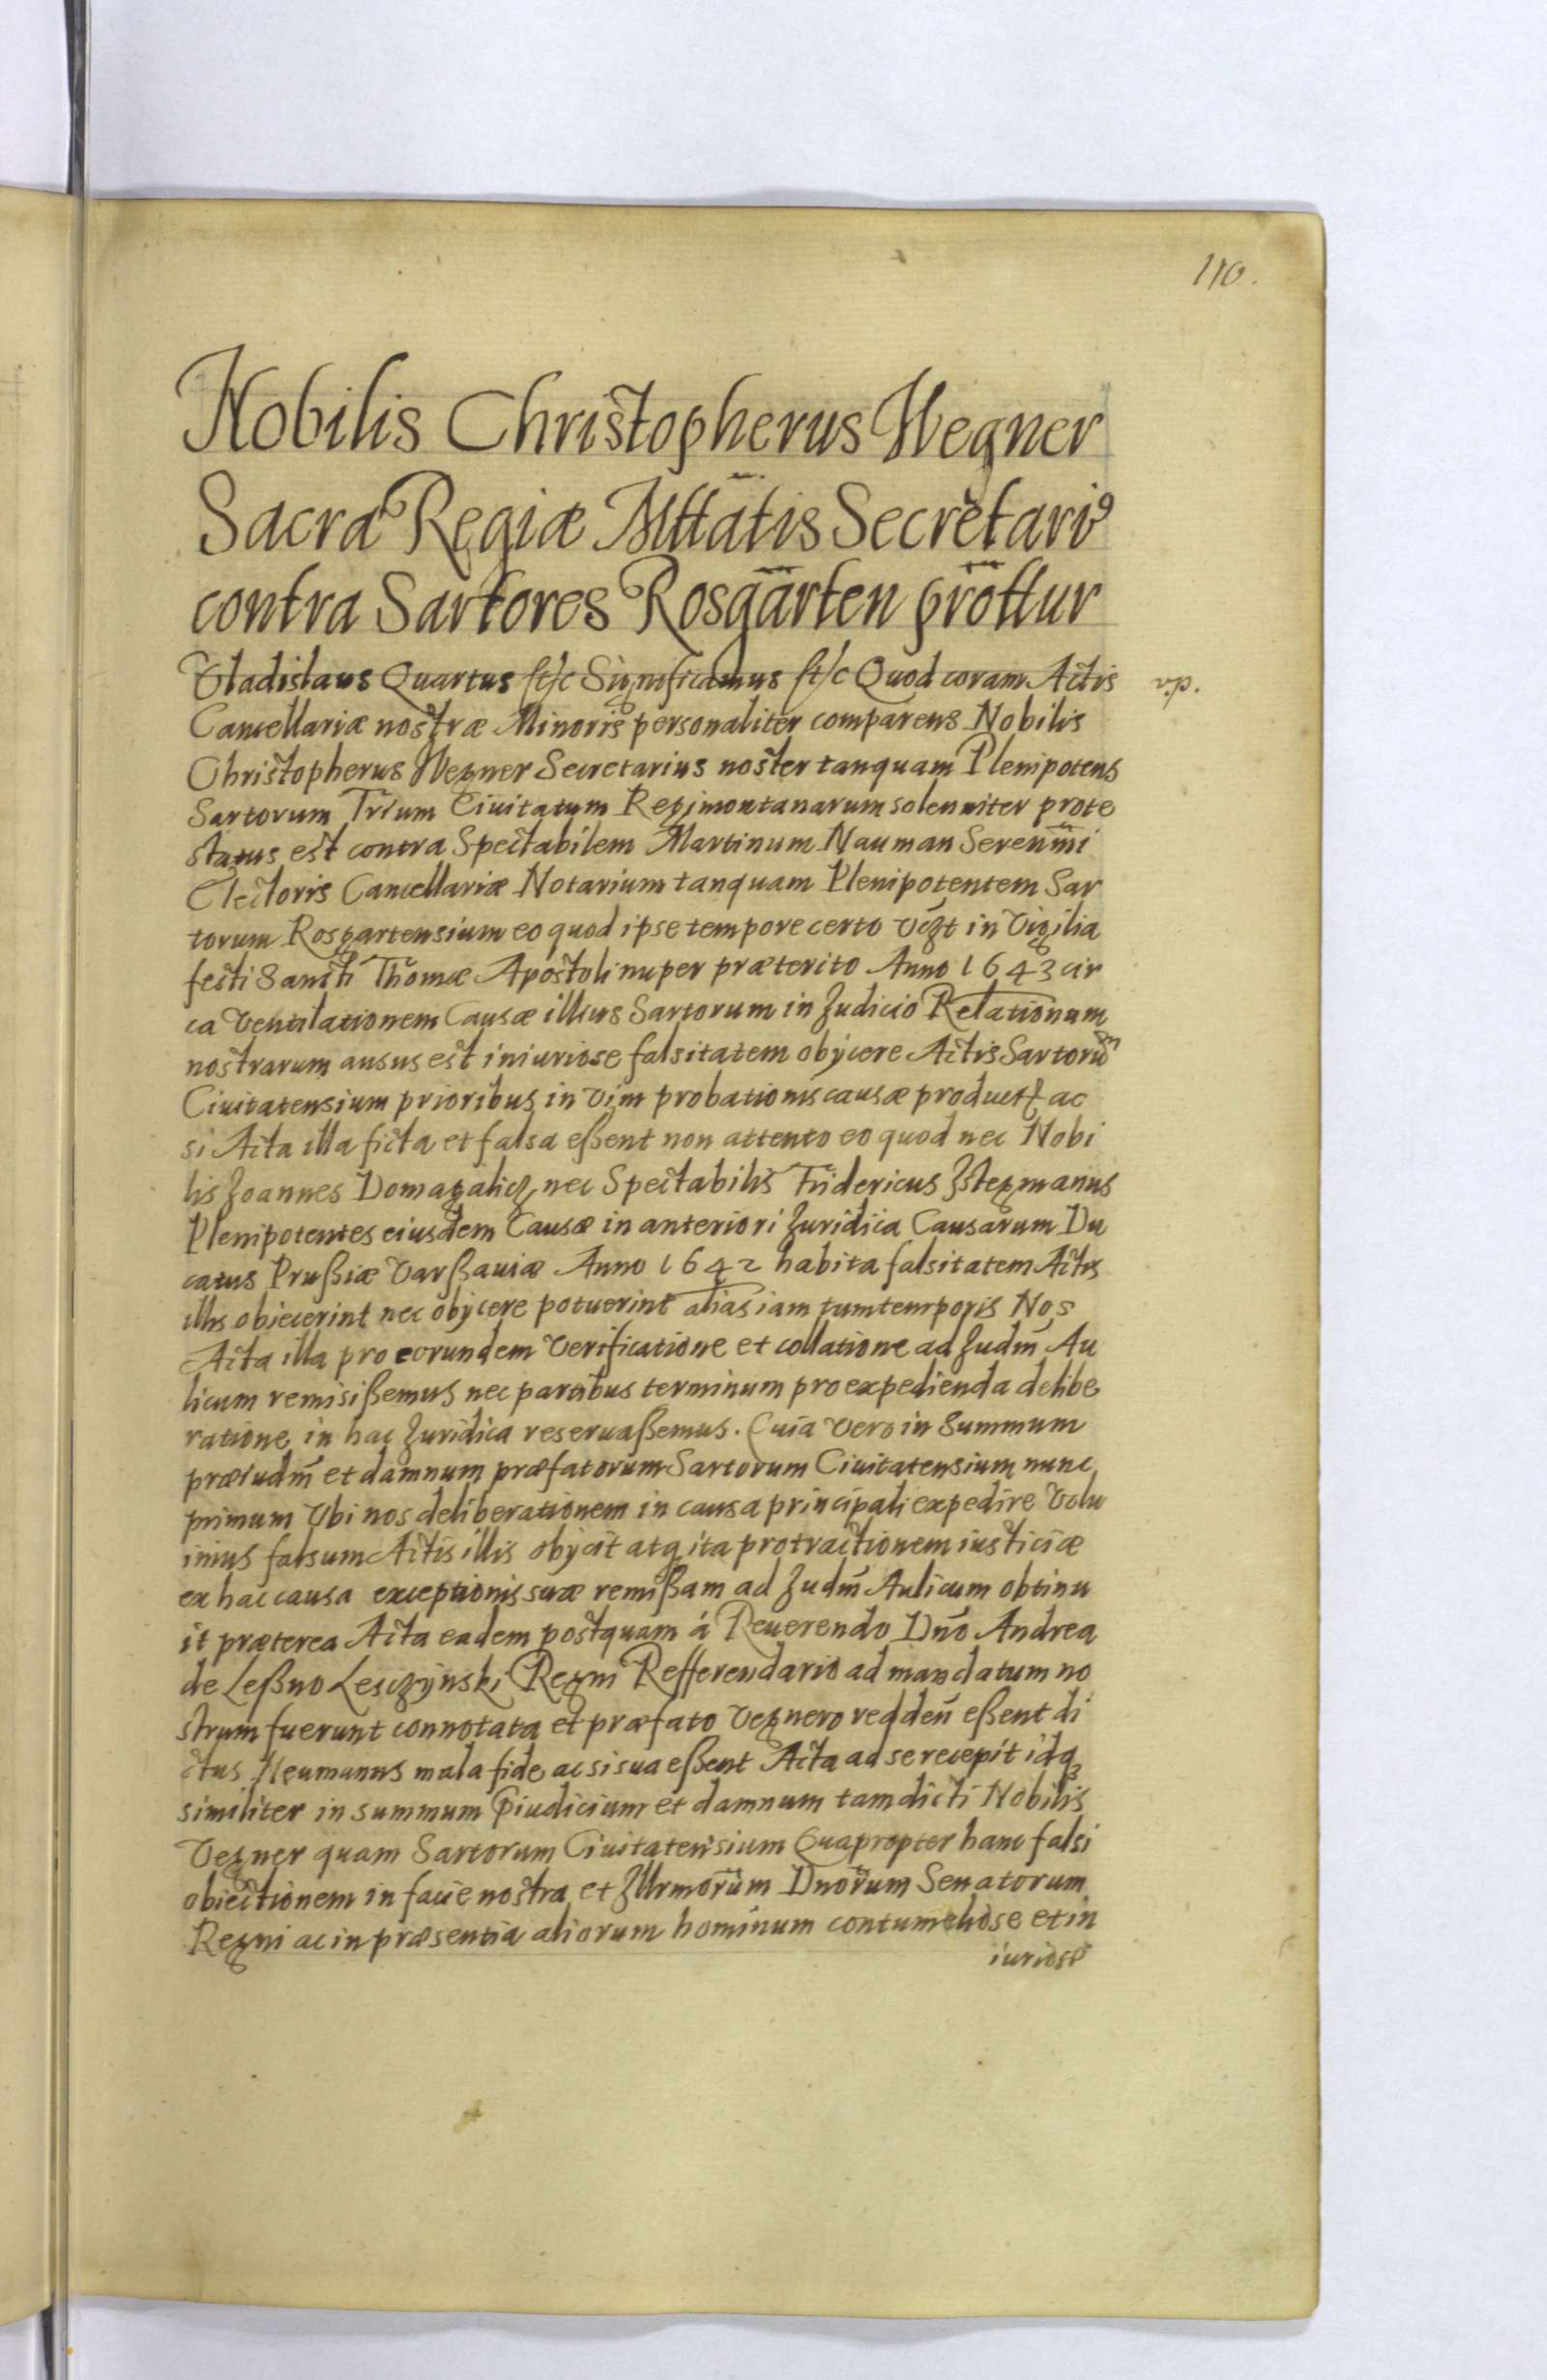 110.
Nobilis Christopherus Wegner
Sacræ Regiæ Mttatis Secretari9
contra Sartores Rosgarten prottur
Vladislaus Quartus etc Significamus etc Quod coram Actis
Cancellariæ nostræ Minoris personaliter comparens Nobilis
Christopherus Wegner Secretarius noster tanquam Plenipotens
Sartorum Trium Ciuitatum Regimontanarum solenniter prote
status est contra Spectabilem Martinum Nauman Serenmi
Electoris Cancellariæ Notarium tanquam Plenipotentem Sar
torum Rosgartensium eo quod ipse tempore certo vczt in Vigilia
festi Sancti Thomæ Apostoli nuper præterito Anno 1643 cir
ca Ventilationem Causæ illius Sartorum in Judicio Relationum
nostrarum ausus est iniuriose falsitatem obÿcere Actis Sartorum
Ciuitatensium prioribus in vim probationis causæ product ac
si Acta illa ficta et falsa eßent non attento eo quod nec Nobi
lis Joannes Domagalicz nec Spectabilis Fridericus Jstegmanus
Plenipotentes eiusdem Causæ in anteriori Juridica Causarum Du
catus Prußiæ Varßauiæ Anno 1642 habita falsitatem Actis
illis obiecerint nec obÿcere potuerint alias iam tum temporis Nos
Acta illa pro eorundem verificatione et collatione ad Judm̄ Au
licum remisißemus nec partibus terminum pro expedienda delibe
ratione in hac Juridica reseruaßemus. Quia vero in Summum
præiudm̄ et damnum præfatorum Sartorum Ciuitatensium nunc
primum Vbi nos deliberationem in causa principali expedire Volu
imus falsum Actis illis obÿcit atq ita protractionem iusticiæ
ex hac causa exceptionis suæ remißam ad Judm̄ Aulicum obtinu
it præterea Acta eadem postquam á Reuerendo Dnō Andrea
de Leßno Lesczÿnski Regni Refferendario ad mandatum no
strum fuerunt connotata et præfato Vegnero redden̄ eßent di
ctus Neumanus mala fide ac si sua eßent Acta ad se recepit idq3
similiter in summum Piudicium et damnum tam dicti Nobilis
Vegner quam Sartorum Ciuitatensium Quapropter hanc falsi
obiectionem in facie nostra et Jllrmorum Dnorum Senatorum
Regni ac in præsentia aliorum hominum contumeliose et in
iuriose